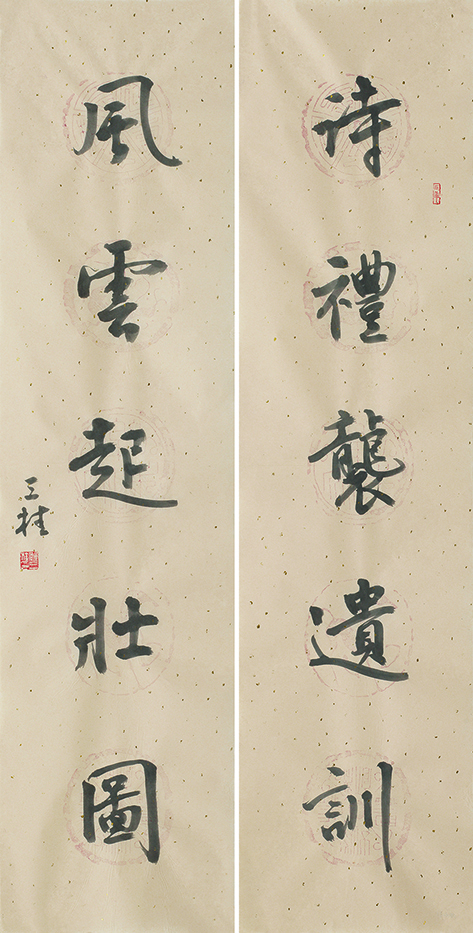 詩禮襲遺訓
風雲起壯圖